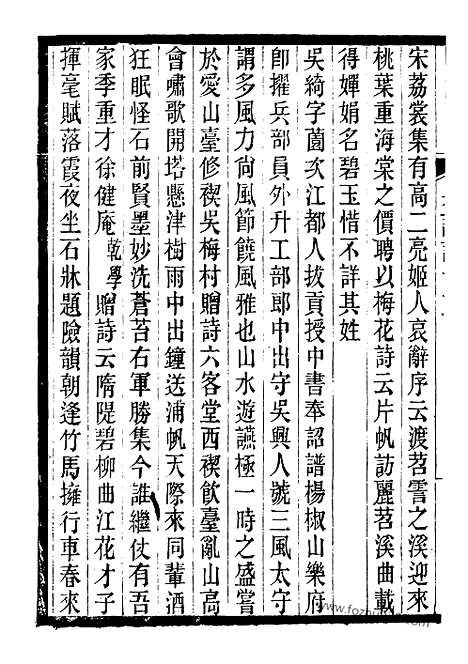 宋荔裳集有高二亮姬人哀辭序云渡苕霅之溪迎來
桃葉重海棠之價聘以梅花詩云片帆訪麗苕溪曲載
得嬋娟名碧玉惜不詳其姓
吳綺字薗次江都人拔貢授中書奉詔譜楊椒山樂府
卽擢兵部員外升工部郎中出守吳興人號三風太守
謂多風力尙風節饒風雅也山水遊讌極一時之盛嘗
於愛山臺修禊吳梅村贈詩六客堂西禊飮臺亂山高
會嘯歌開塔懸津樹雨中出鐘送浦帆天際來同輩酒
狂眠怪石前賢墨妙洗蒼苔右軍勝集今誰繼仗有吾
家季重才徐健庵乾學贈詩云隋隄碧柳曲江花才子
揮毫賦落霞夜坐石牀題險韻朝逢竹馬擁行車春來